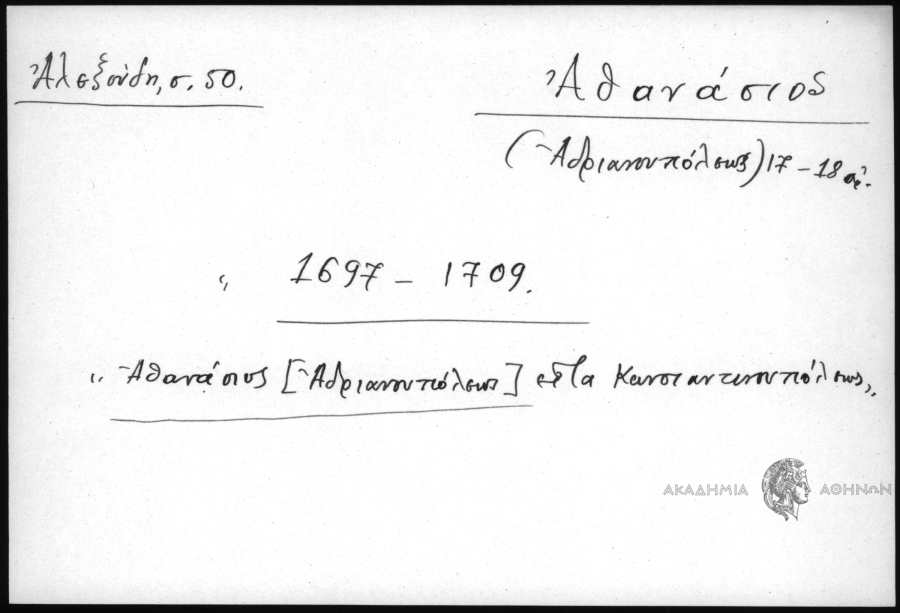 Ἀλεξούδη, σ. 50.
Ἀθανάσιος
(Ἀδριανουπόλεως) 17 – 18 αἰ.
„ 1697 – 1709.
„ Ἀθανάσιος [Ἀδριανουπόλεως] εἶτα Κωνσταντινουπόλεως „
ΑΚΑΔΗΜΙΑ ΑΘΗΝΩΝ